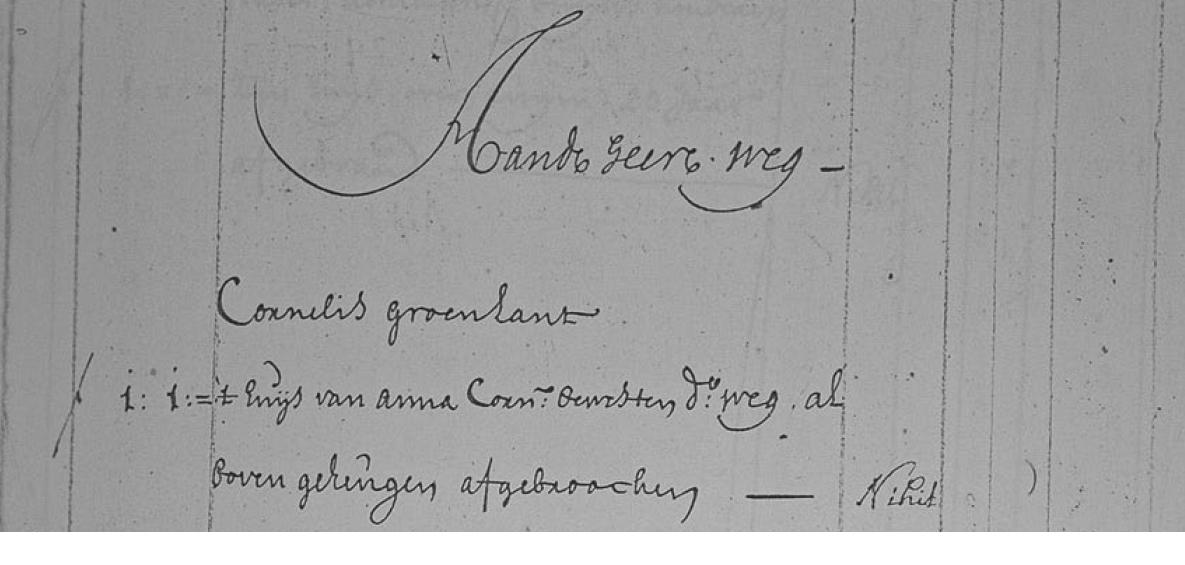 Aande Heere. weg -
Cornelis groenlant
1: 1:= 't huijs van anna Corn: bewesten do: weg. al
boven gehengen afgebroochen — Nihil